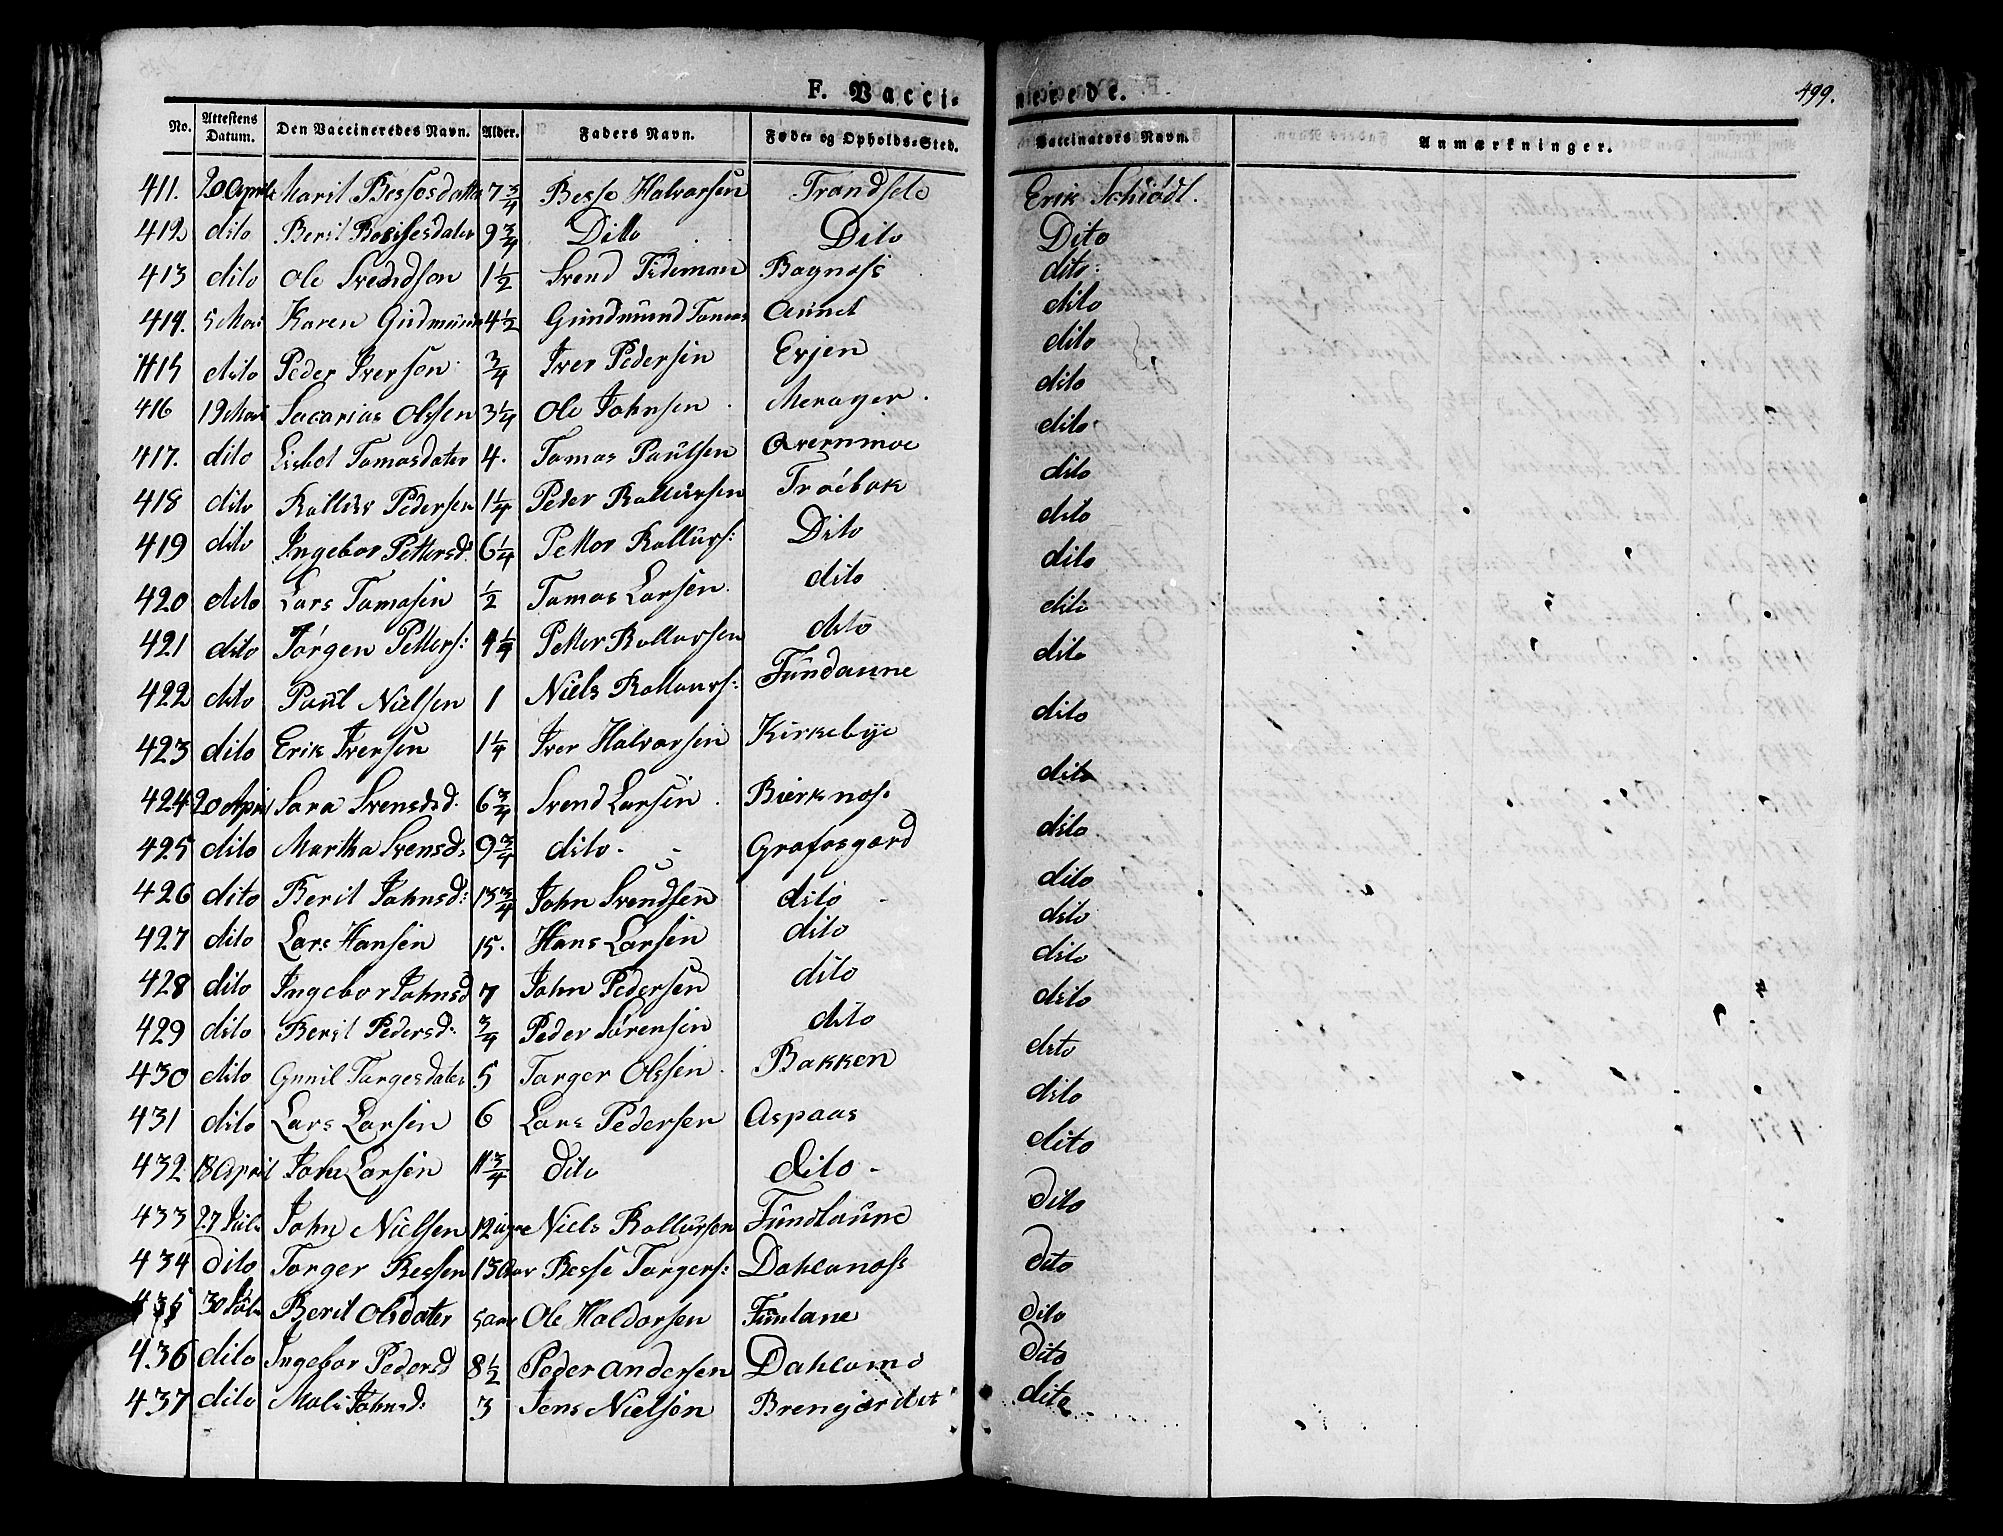 499.
F. Vaccinerede.
No. Attestens Datum. Den Vaccineredes Navn. Alder. Faders Navn. Føde- og Opholds-Sted. Vaccinators Navn. Anmærkninger.
411. 20 April Marit Bessesdatter 7 3/4 Besse Halvorsen Trondsele Erik Schiødt.
412 dito Berit Bessesdater 9 3/4 Ditto Dito Dito
413 dito Ole Svendson 1 1/2 Svend Tideman Bognøss dito
414. 5 Mai Karen Gudmunds 4 1/2 Gundmund Tomas Aunet dito
415 dito Peder Iverson 3/4 Iver Pedersen Evjen dito
416 19 Mai Sacarias Olssen 3 1/4 Ole Johnsen Merager dito
417. dito Lisbet Tomasdater 4. Tomas Paulsen Overnmoe dito
418 dito Pedersen 1 1/4 Peder Rollursen Trøebak dito
419 dito Ingebor Pettersd: 6 1/4 Petter Rollurs: Dito dito
420 dito Lars Tomasen 1/2 Tomas Larsen dito dito
421 dito Jørgen Petters: 4 1/4 Petter Rollursen dito dito
422 dito Paul Nielsen 1 Niels Rollaurs: Fundaune dito
423 dito Erik Iversen 1 1/4 Iver Halvorsen Kirkebye dito
424 20 April Sara Svensdsd. 6 3/4 Svend Larsen Bierknos dito
425 dito Martha Svensd: 9 3/4 dito Grofosgærd dito
426 dito Berit Johnsd: 13 3/4 John Svendsen dito dito
427 dito Lars Hansen 15. Hans Larsen dito dito
428 dito Ingebor Johnsd 7 John Pedersen dito dito
429 dito Berit Pedersd: 3/4 Peder Sørensen dito dito
430 dito Gunil Torgesdater 5 Torger Olssen Bakken dito
431 dito Lars Larsen 6 Lars Pedersen Aspaas dito
432 18 April John Larsen 11 3/4 dito dito dito
433 27 Juli John Nielsen 12 uger Niels Rollursen Fundlaune dito
434 dito Torger Bessen 13 Aar Besse Torgers: Dahlanoss dito
435 30 Juli Berit Olsdater 5 aar Ole Haldorsen Funlane dito
436 dito Ingebor Pedersd 8 1/2 Peder Andersen dito
437 dito Mali Johnsd: 3 Jons Nielsøn Brengardet dito